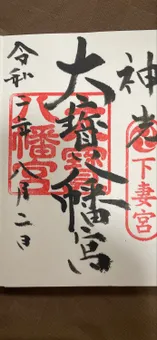 神光
下妻宮
大宝八幡宮
八幡宮
令和二年八月二日